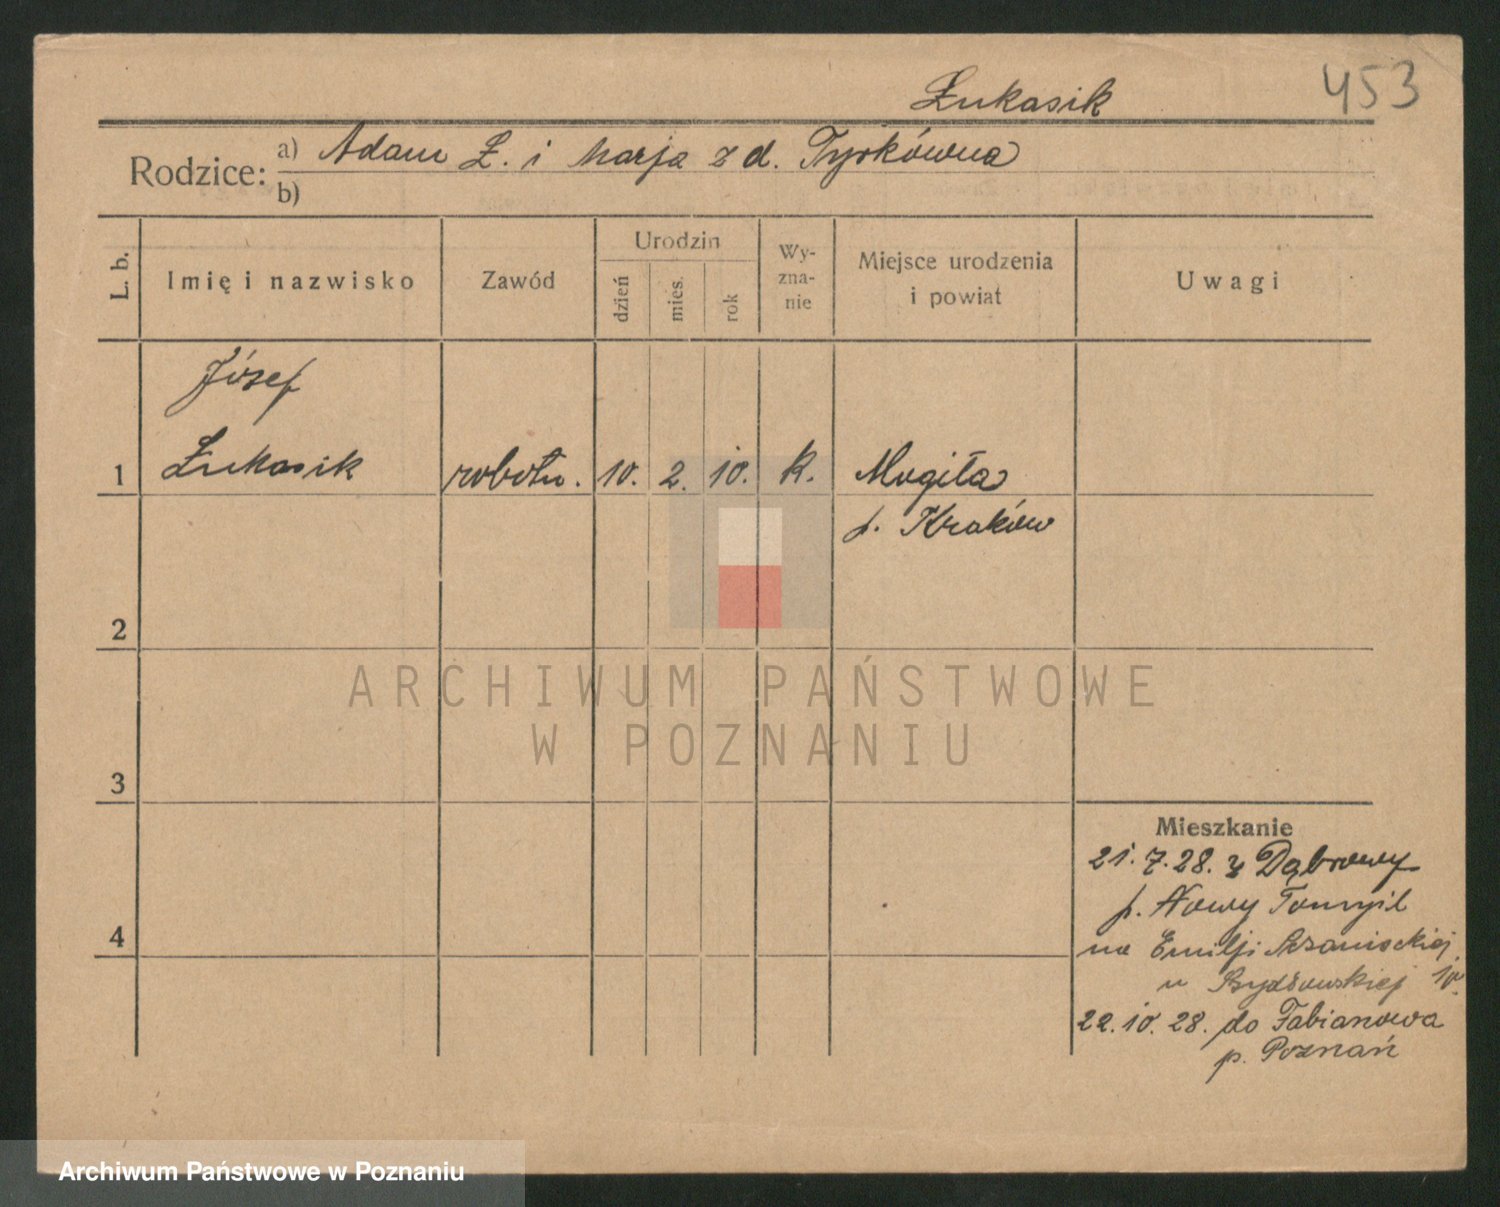 453
Łukasik
Rodzice: a) Adam Ł. i Marja z d. Tyrkówna
b)
L. b. Imię i nazwisko Zawód Urodzin dzień mies. rok Wy-zna-nie Miejsce urodzenia i powiat Uwagi
Józef
1 Łukasik robotn. 10. 2. 10. k. Mogiła
p. Kraków
2
3
4
Mieszkanie
21. 7. 28. z Dąbrowy
p. Nowy Tomyśl
na Emilji Sczanieckiej
u 10.
22. 10. 28. do Fabianowa
p. Poznań
ARCHIWUM PAŃSTWOWE
W POZNANIU
Archiwum Państwowe w Poznaniu